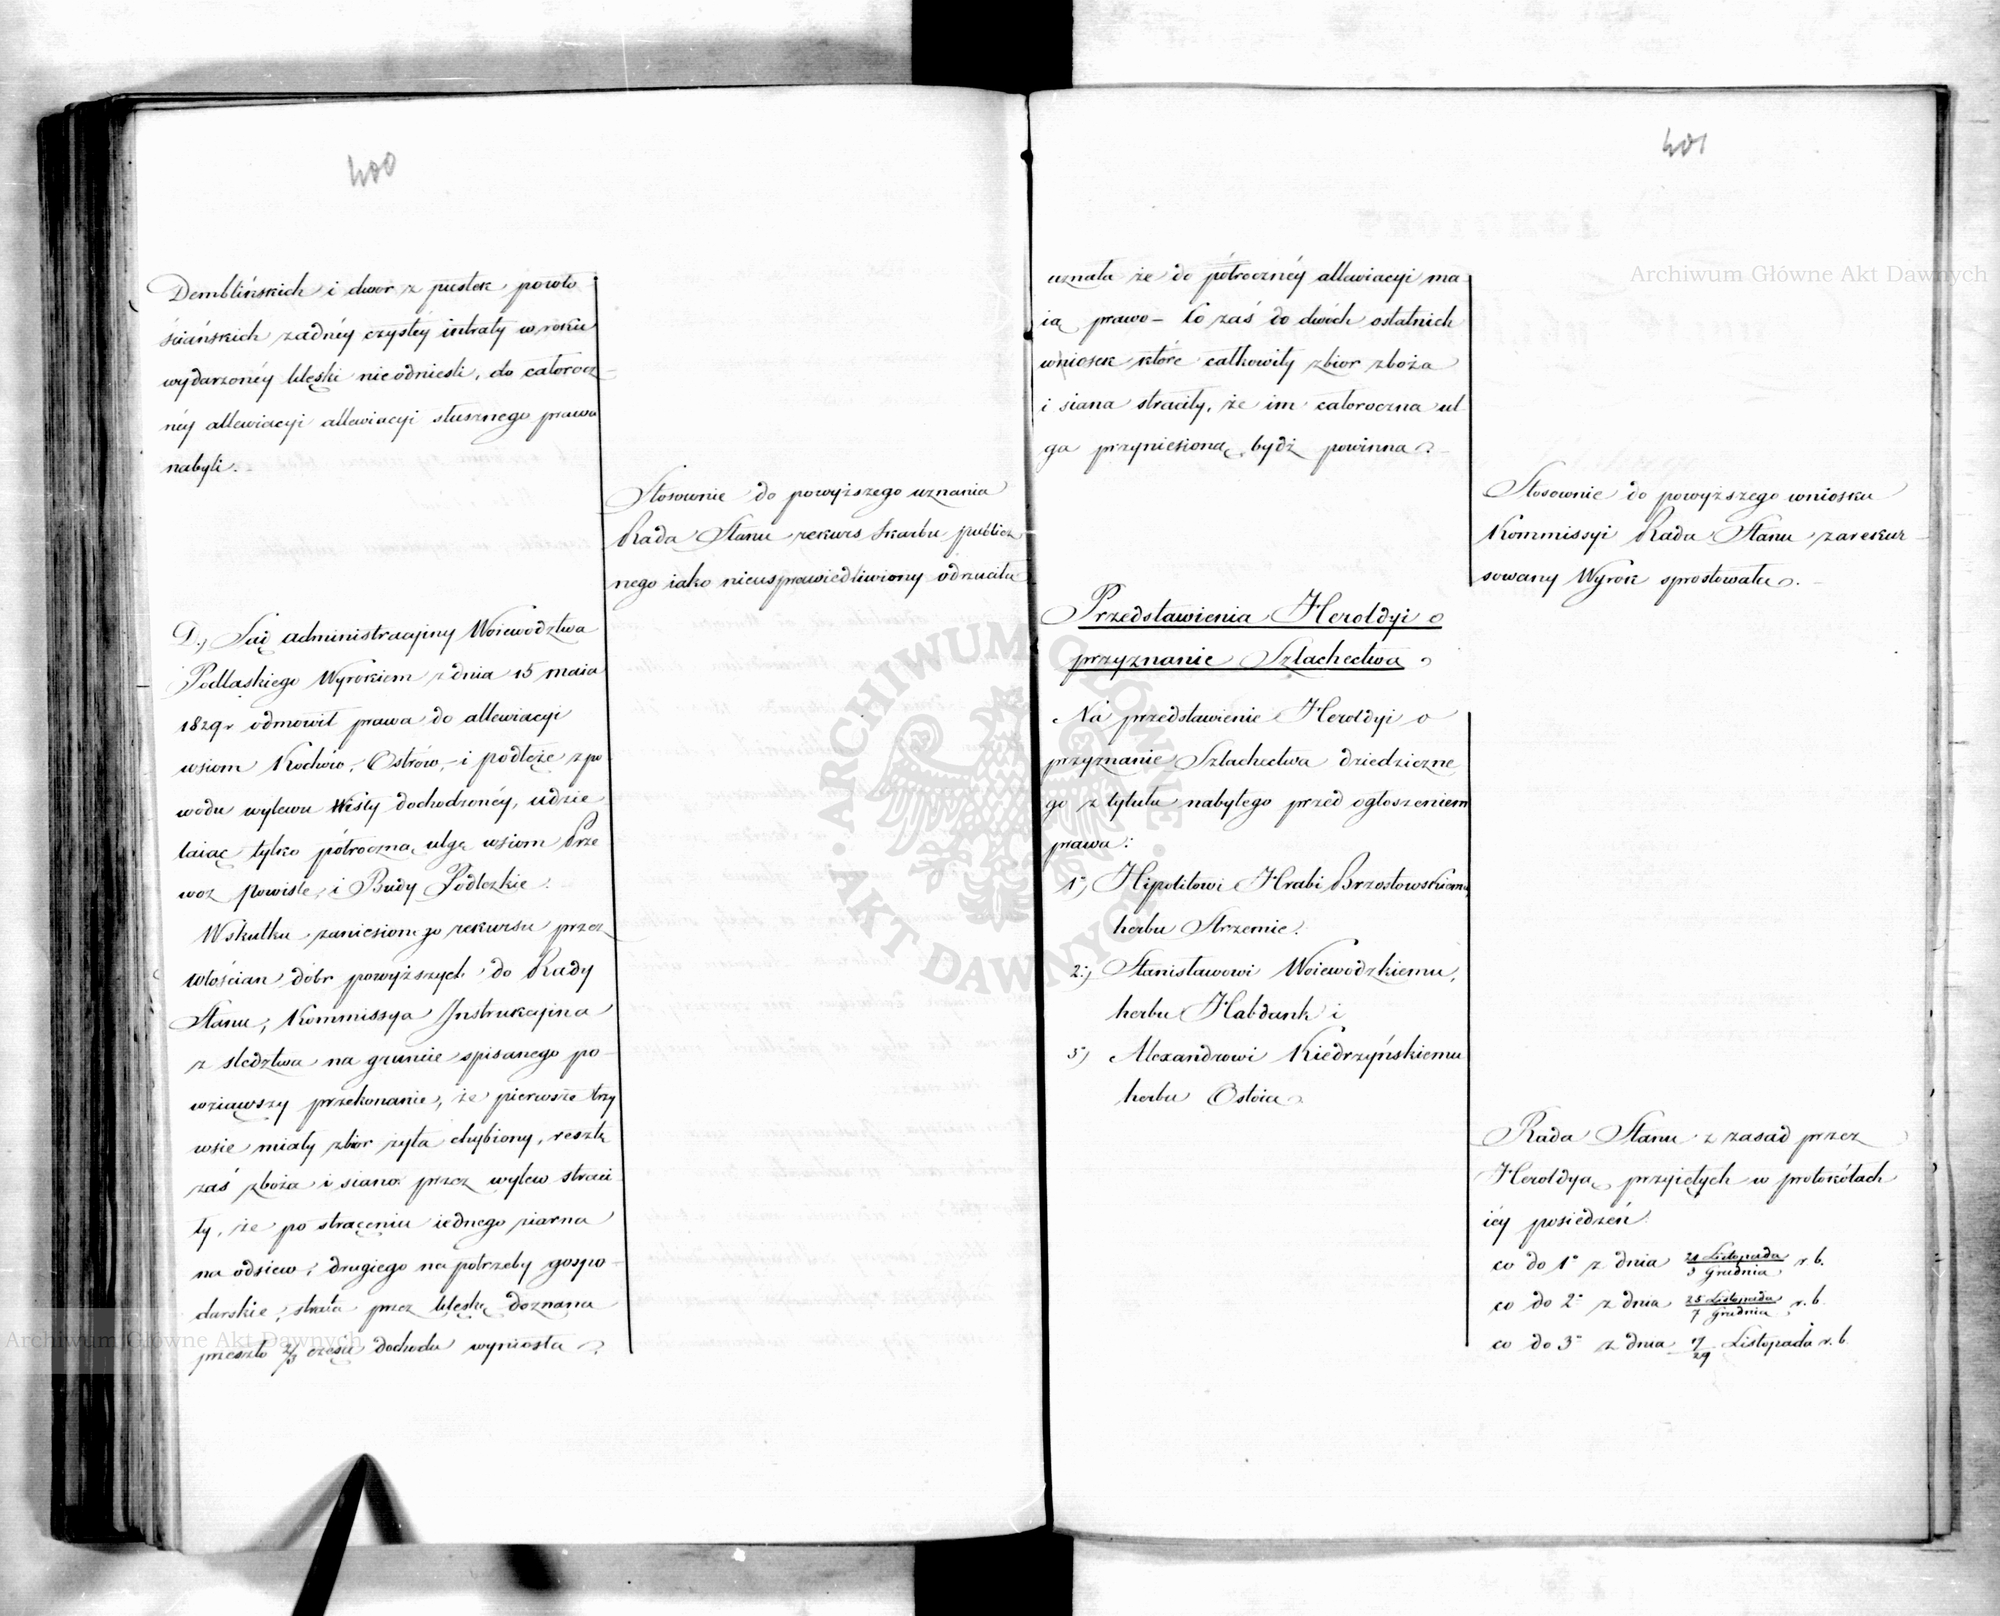 400
Demblińskich i dwór z pustek powło
ściańskich żadnéy czystéy intraty w roku
wydarzonéy klęski nieodnieśli, do całorocz-
néy allewiacyi allewiacyi słusznego prawa
nabyli.
Stosownie do powyższego uznania
Rada Stanu rekurs Skarbu publicz
nego iako nieusprawiedliwiony odrzuciła
D.) Sąd administracyiny Woiewodztwa
Podlaskiego Wyrokiem z dnia 15 maia
1829 r odmówił prawa do allewiacyi
wsiom Kochów, Ostrów, i podłęże z po
wodu wylewu Wisły dochodzonéy, udzie
laiąc tylko półroczną ulgę wsiom Prze
woz powiśle, i Budy Podłezkie.
Wskutku zaniesionego rekursu przez
włościan dóbr powyższych do Rady
Stanu, Kommissya Instrukcyina
z śledztwa na gruncie spisanego po-
wziąwszy przekonanie, że pierwsze trzy
wsie miały zbior żyta chybiony, resztę
zaś zboża i siano przez wylew straci
ły, że po strąceniu iednego ziarna
na odsiew, drugiego na potrzeby gospo-
darskie, strata przez klęskę doznana
przeszło 2/3 części dochodu wyniosła
401
uznała że do półrocznéy allewiacyi ma-
ią prawo – co zaś do dwóch ostatnich
wniosek które całkowity zbior zboża
i siana straciły, że im całoroczna ul
ga przyniesioną bydź powinna.
Stosownie do powyższego wniosku
Kommissyi Rada Stanu zarekur-
sowany Wyrok sprostowała.
Przedstawienia Heroldyi o
przyznanie Szlachectwa
Na przedstawienie Heroldyi o
przyznanie Szlachectwa dziedziczne
go z tytułu nabytego przed ogłoszeniem
prawa:
1.) Hipolitowi Hrabi Brzostowskiemu
herbu Strzemie.
2.) Stanisławowi Woiewódzkiemu,
herbu Habdank i
3) Alexandrowi Kiedrzyńskiemu
herbu Ostoia
Rada Stanu z zasad przez
Heroldyą przyiętych w protokółach
iéy posiedzeń.
co do 1° z dnia 21 Listopada / 3 Grudnia r. b.
co do 2° z dnia 25 Listopada / 7 Grudnia r. b.
co do 3° z dnia 17/29 Listopada r. b.
Archiwum Główne Akt Dawnych
Archiwum Główne Akt Dawnych
· ARCHIWUM GŁÓWNE · AKT DAWNYCH